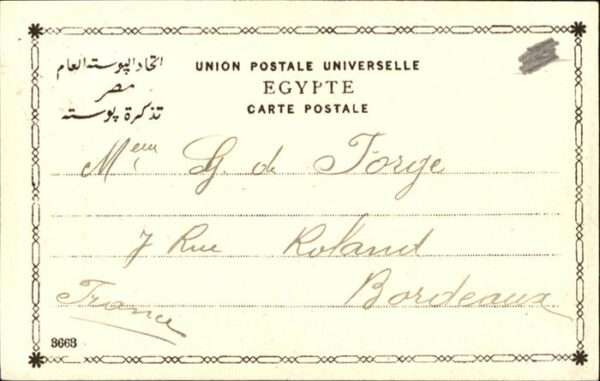 اتحاد البوسته العام
مصر
تذكرة بوسته
UNION POSTALE UNIVERSELLE
EGYPTE
CARTE POSTALE
Mem G. de Torge
7 Rue Roland
Bordeaux
France
3663